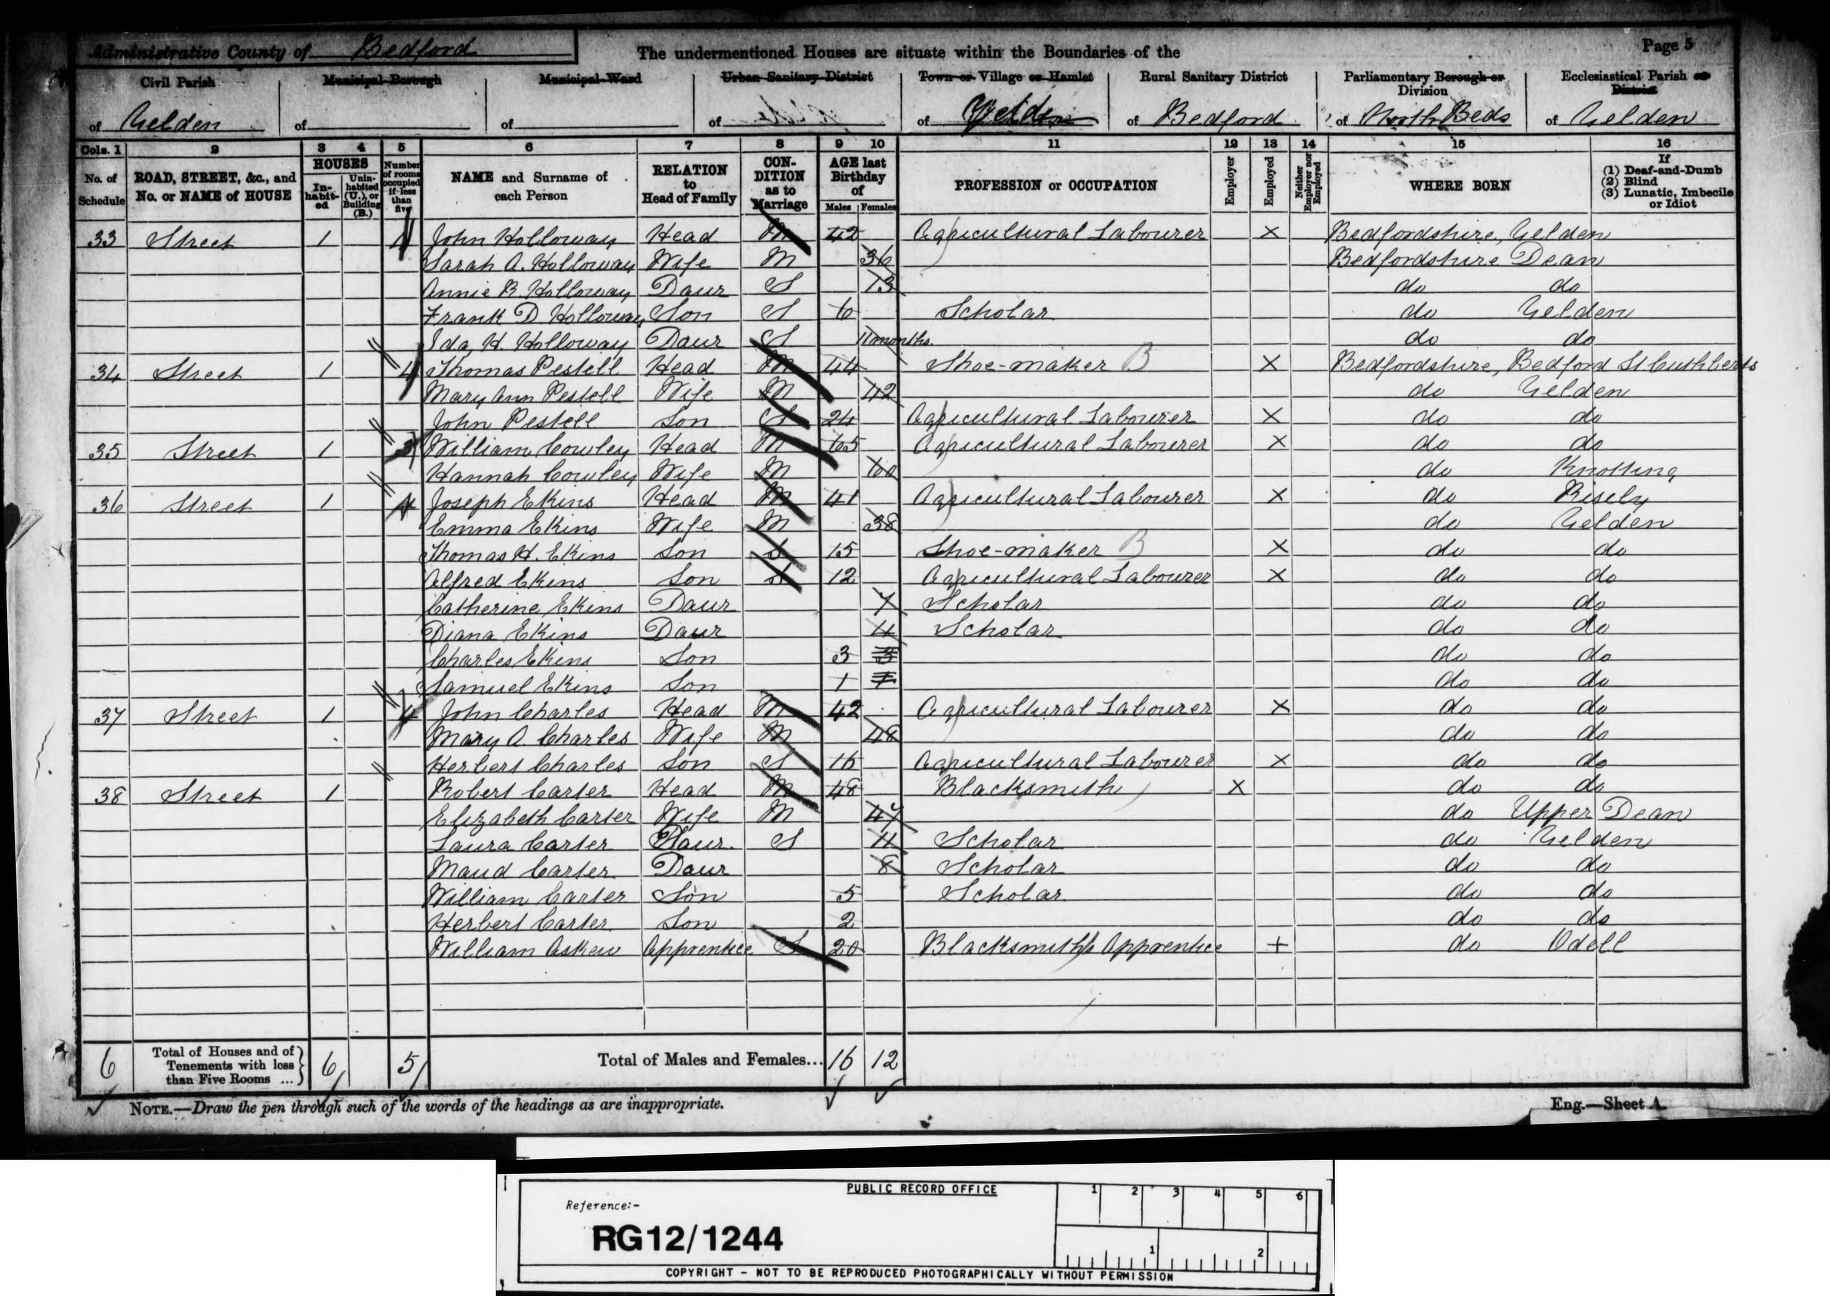 Administrative County of Bedford The undermentioned Houses are situate within the Boundaries of the Page 5
Civil Parish Municipal Borough Municipal Ward Urban Sanitary District Town or Village or Hamlet Rural Sanitary District Parliamentary Borough or Division Ecclesiastical Parish or District
of Yelden of of of of Yelden of Bedford of North Beds of Yelden
Cols. 1 2 3 4 5 6 7 8 9 10 11 12 13 14 15 16
No. of Schedule ROAD, STREET, &c., and No. or NAME of HOUSE HOUSES Inhabited Uninhabited (U.), or Building (B.) Number of rooms occupied if less than five NAME and Surname of each Person RELATION to Head of Family CONDITION as to Marriage AGE last Birthday of Males Females PROFESSION or OCCUPATION Employer Employed Neither Employer nor Employed WHERE BORN If (1) Deaf-and-Dumb (2) Blind (3) Lunatic, Imbecile or Idiot
33 Street 1 4 John Holloway Head M 42 Agricultural Labourer X Bedfordshire, Yelden
Sarah A. Holloway Wife M 36 Bedfordshire Dean
Annie B. Holloway Daur S 13 do do
Frank D Holloway Son S 6 Scholar do Yelden
Ida H. Holloway Daur S 11 months do do
34 Street 1 4 Thomas Pestell Head M 44 Shoe-maker B X Bedfordshire, Bedford St Cuthberts
Mary Ann Pestell Wife M 42 do Yelden
John Pestell Son S 24 Agricultural Labourer X do do
35 Street 1 3 William Cowley Head M 65 Agricultural Labourer X do do
Hannah Cowley Wife M 60 do Knotting
36 Street 1 4 Joseph Ekins Head M 41 Agricultural Labourer X do Risely
Emma Ekins Wife M 38 do Yelden
Thomas H. Ekins Son S 15 Shoe-maker B X do do
Alfred Ekins Son S 12 Agricultural Labourer X do do
Catherine Ekins Daur 7 Scholar do do
Diana Ekins Daur 4 Scholar do do
Charles Ekins Son 3 3 do do
Samuel Ekins Son 1 1 do do
37 Street 1 4 John Charles Head M 42 Agricultural Labourer X do do
Mary A. Charles Wife M 48 do do
Herbert Charles Son S 16 Agricultural Labourer X do do
38 Street 1 Robert Carter Head M 48 Blacksmith X do do
Elizabeth Carter Wife M 47 do Upper Dean
Laura Carter Daur. S 11 Scholar do Yelden
Maud Carter Daur 8 Scholar do do
William Carter Son 5 Scholar do do
Herbert Carter Son 2 do do
William Askew Apprentice S 20 Blacksmith's Apprentice + do Odell
6 Total of Houses and of Tenements with less than Five Rooms ... 6 5 Total of Males and Females... 16 12
NOTE.—Draw the pen through such of the words of the headings as are inappropriate. Eng.—Sheet A.
PUBLIC RECORD OFFICE 1 2 3 4 5 6
Reference:-
RG12/1244 1 2
COPYRIGHT - NOT TO BE REPRODUCED PHOTOGRAPHICALLY WITHOUT PERMISSION